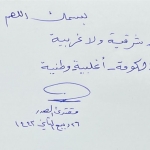 بسمك اللهم
لا شرقية ولا غربية
الحكومة - أغلبية وطنية
مقتدى الصدر
ربيع الثاني ١٤٤٣